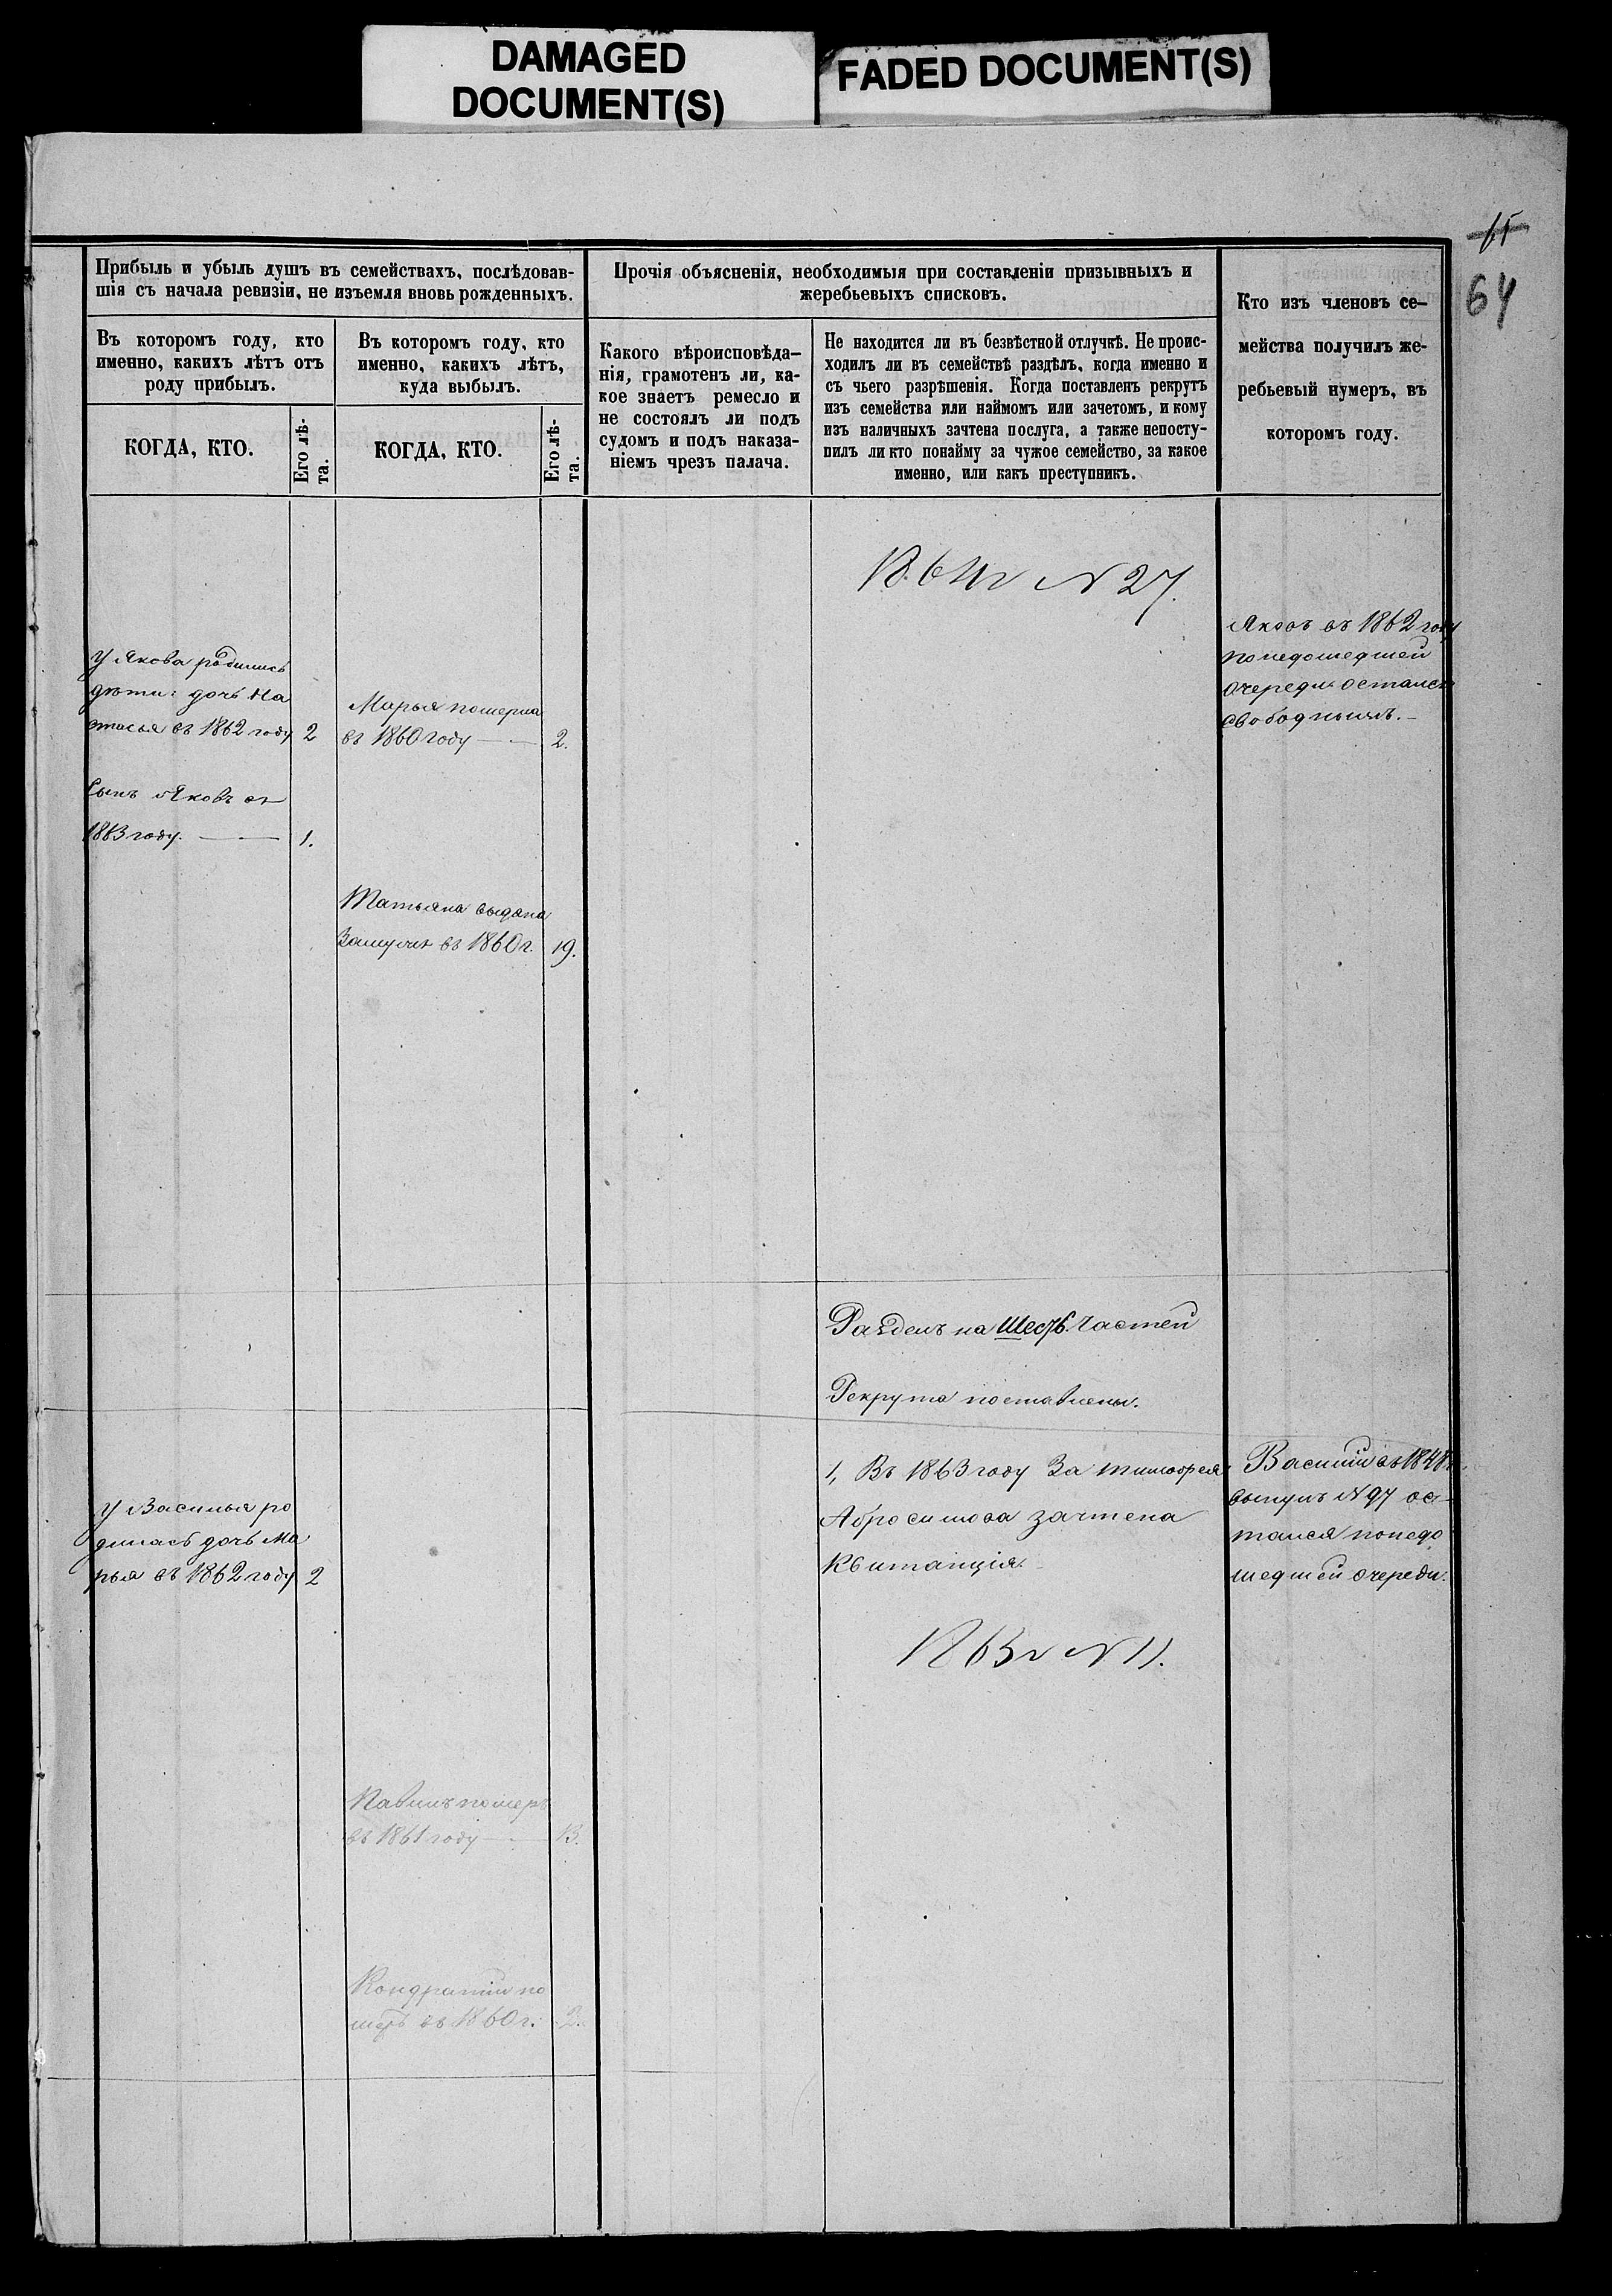 DAMAGED
DOCUMENT(S)
FADED DOCUMENT(S)
64
Прибыль и убыль душъ въ семействахъ, послѣдовав-
шія съ начала ревизіи, не изъемля вновь рожденныхъ.
Въ которомъ году, кто
именно, какихъ лѣтъ отъ
роду прибылъ.
Въ которомъ году, кто
именно, какихъ лѣтъ,
куда выбылъ.
КОГДА, КТО.
Его лѣ-
та.
КОГДА, КТО.
Его лѣ-
та.
Прочія объясненія, необходимыя при составленіи призывныхъ и
жеребьевыхъ списковъ.
Какого вѣроисповѣда-
нія, грамотенъ ли, ка-
кое знаетъ ремесло и
не состоялъ ли подъ
судомъ и подъ наказа-
ніемъ чрезъ палача.
Не находится ли въ безвѣстной отлучкѣ. Не проис-
ходилъ ли въ семействѣ раздѣлъ, когда именно и
съ чьего разрѣшенія. Когда поставленъ рекрутъ
изъ семейства или наймомъ или зачетомъ, и кому
изъ наличныхъ зачтена послуга, а также непосту-
пилъ ли кто понайму за чужое семейство, за какое
именно, или какъ преступникъ.
Кто изъ членовъ се-
мейства получилъ же-
ребьевый нумеръ, въ
которомъ году.
1864г N 27.
Яковъ въ 1862 году
понедошедшей
очереди остался
свободнымъ.
У Якова родились
дѣти: дочь На
стасья въ 1862 году 2
Марья померла
въ 1860 году 2.
Сынъ Яковъ въ
1863 году. 1.
Татьяна выдана
Замужъ въ 1860 г. 19.
Разделъ на Шесть Частей
Рекрута поставлены.
1, Въ 1863 году За Тимофея
Абросимова зачтена
Квитанція.
Василій въ 1848
вынулъ N 97 ос-
тался понедо
шедшей очереди.
У Василья ро
дилась дочь Ма
рья въ 1862 году 2
1863г N 11.
Павилъ померъ
въ 1861 году 13.
Кондратій по
меръ въ 1860 г. 2.